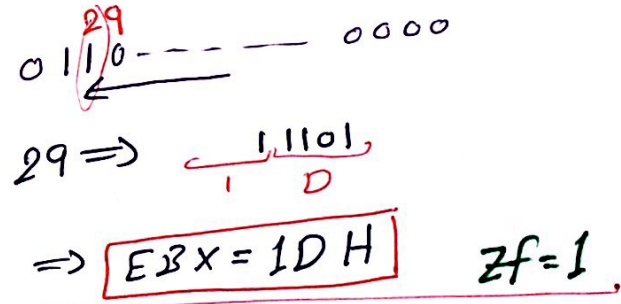 29
0 1 1 0 - - - - — 0 0 0 0
29 ⇒ 1 1101
1 D
⇒ EBX = 1D H zf = 1